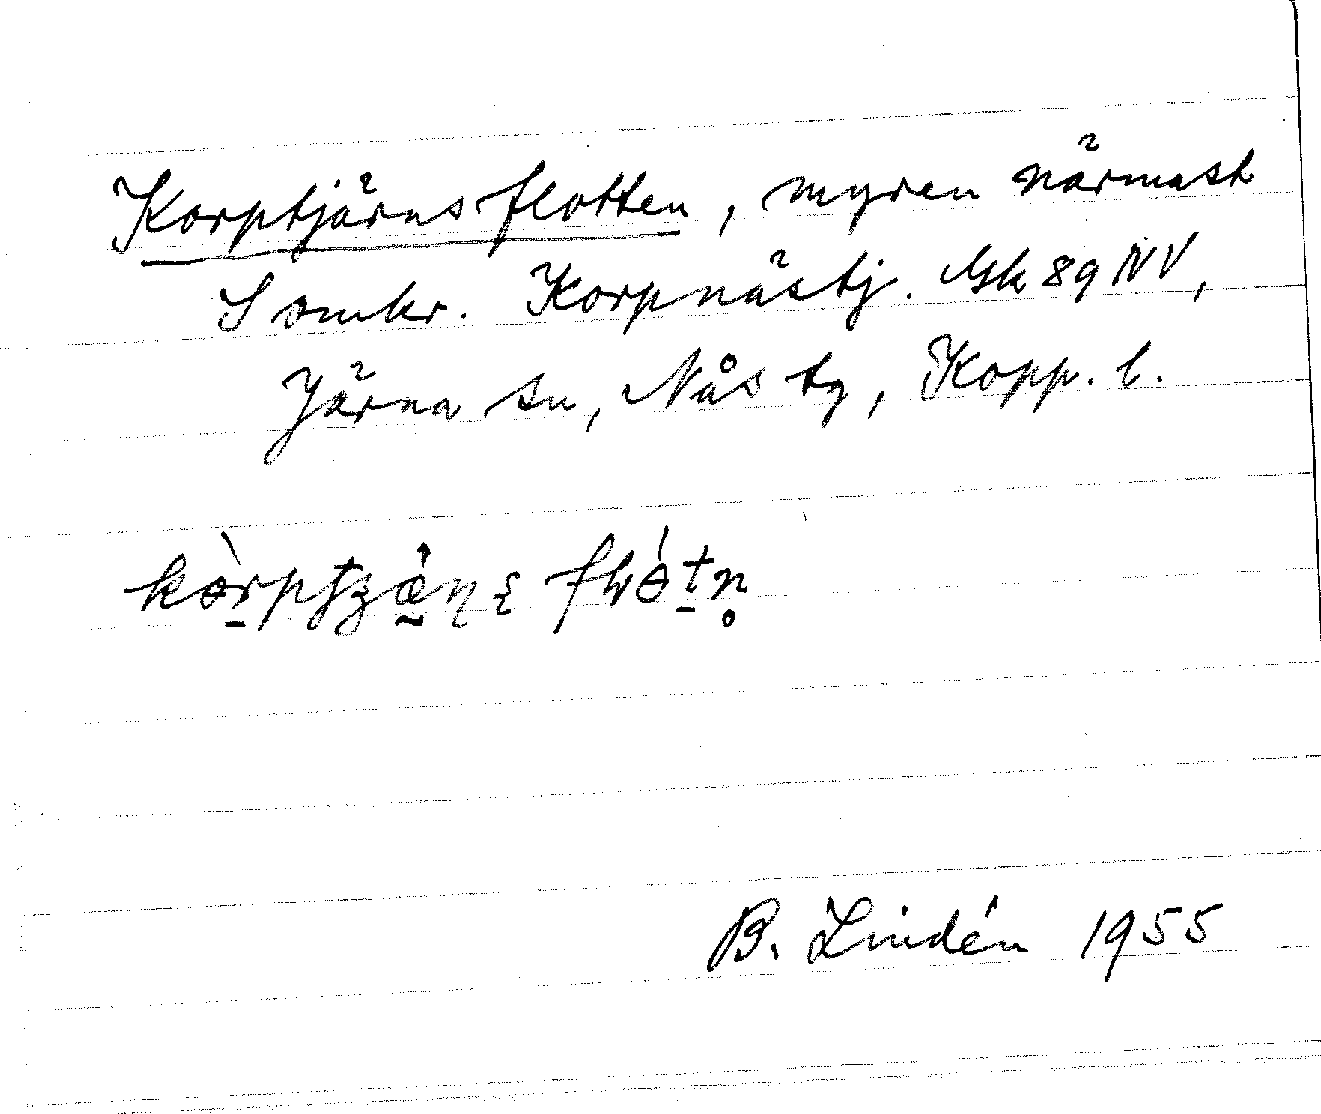 Korptjärnsflotten, myren närmast
S omkr. Korpnästj. Gsk 89 NV,
Järna sn, Nås tg, Kopp. l.
B. Lindén 1955